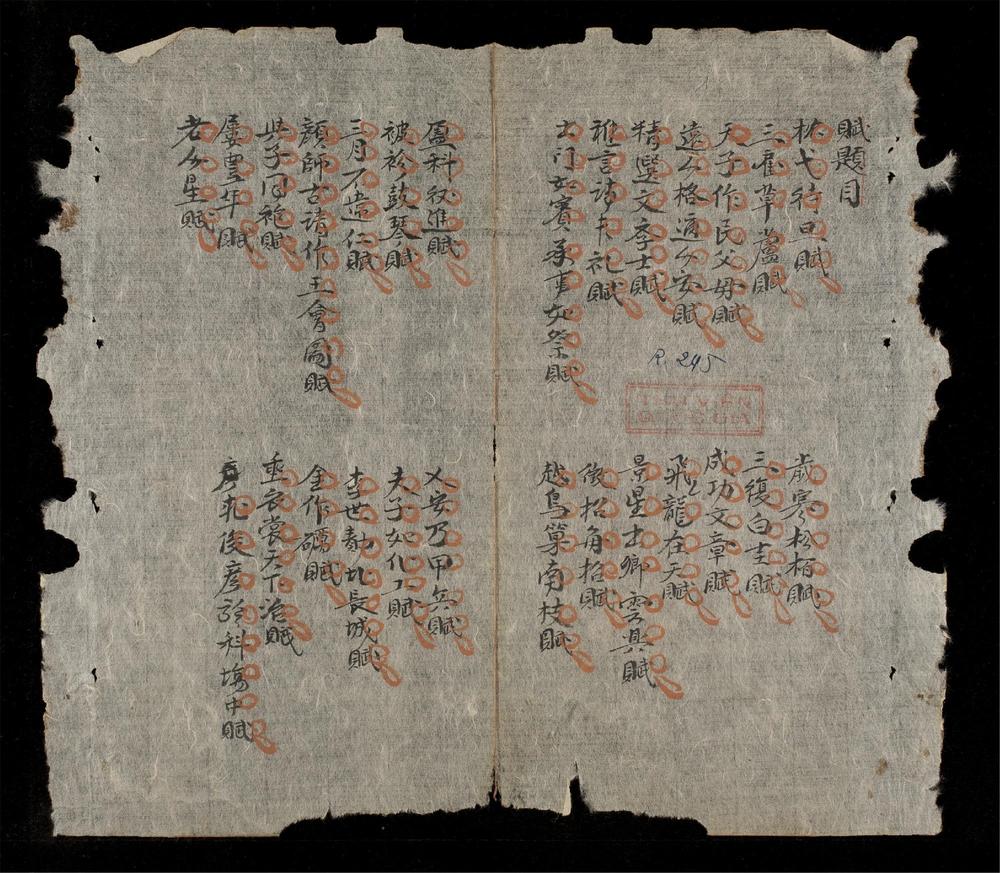 賦題目
枕戈待旦賦
三雇草蘆賦
天子作民父母賦
遠人格邇人安賦
精選文斈士賦
雅言詩書礼賦
出門如賓承事如祭賦
R. 245
歲寒松栢賦
三復白圭賦
成功文章賦
飛龍在天賦
景星卿雲興賦
徵招角招賦
越鳥巢南枝賦
盈科後進賦
被袗鼓琴賦
三月不違仁賦
顔師古請作王會圖賦
與子同袍賦
屢豊年賦
老人星賦
乂安乃甲兵賦
夫子如化工賦
李世勣比長城賦
金作礪賦
垂衣裳天下治賦
俊彦 科塲中賦